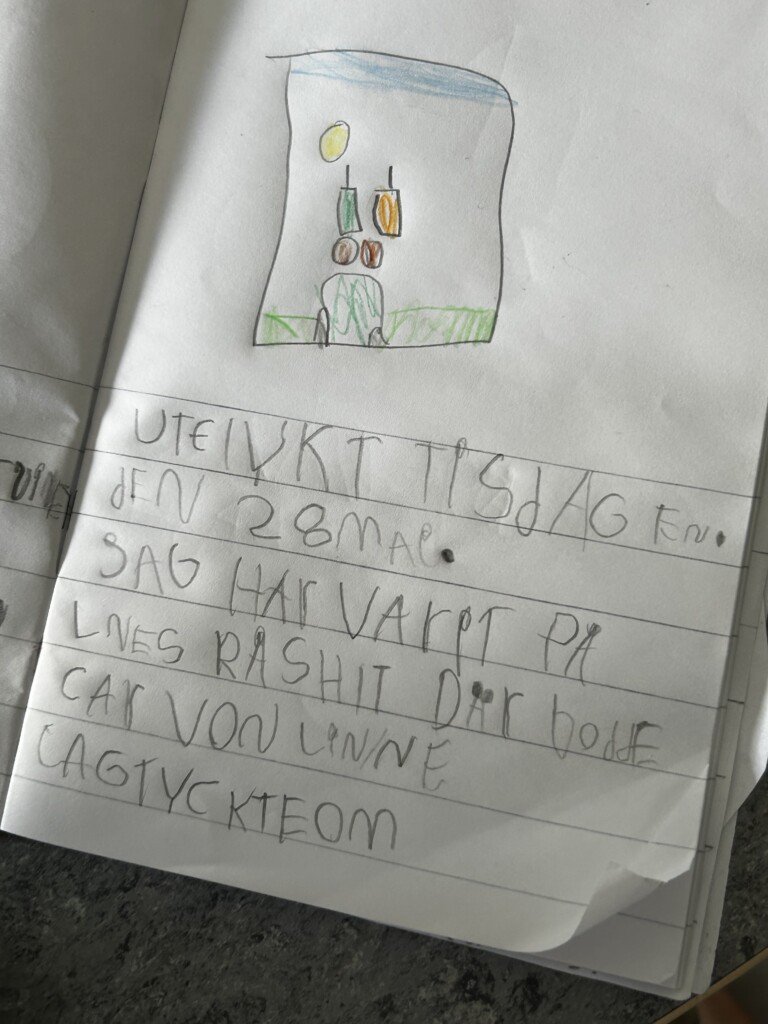 UTEIVKT TISdAG EN.
dEN 28 MAI.
JAG HAr VArIT PÅ
LNES RÅSHIT DÄr boddE
CAr VON LINNE
JAGTYCKTEOM